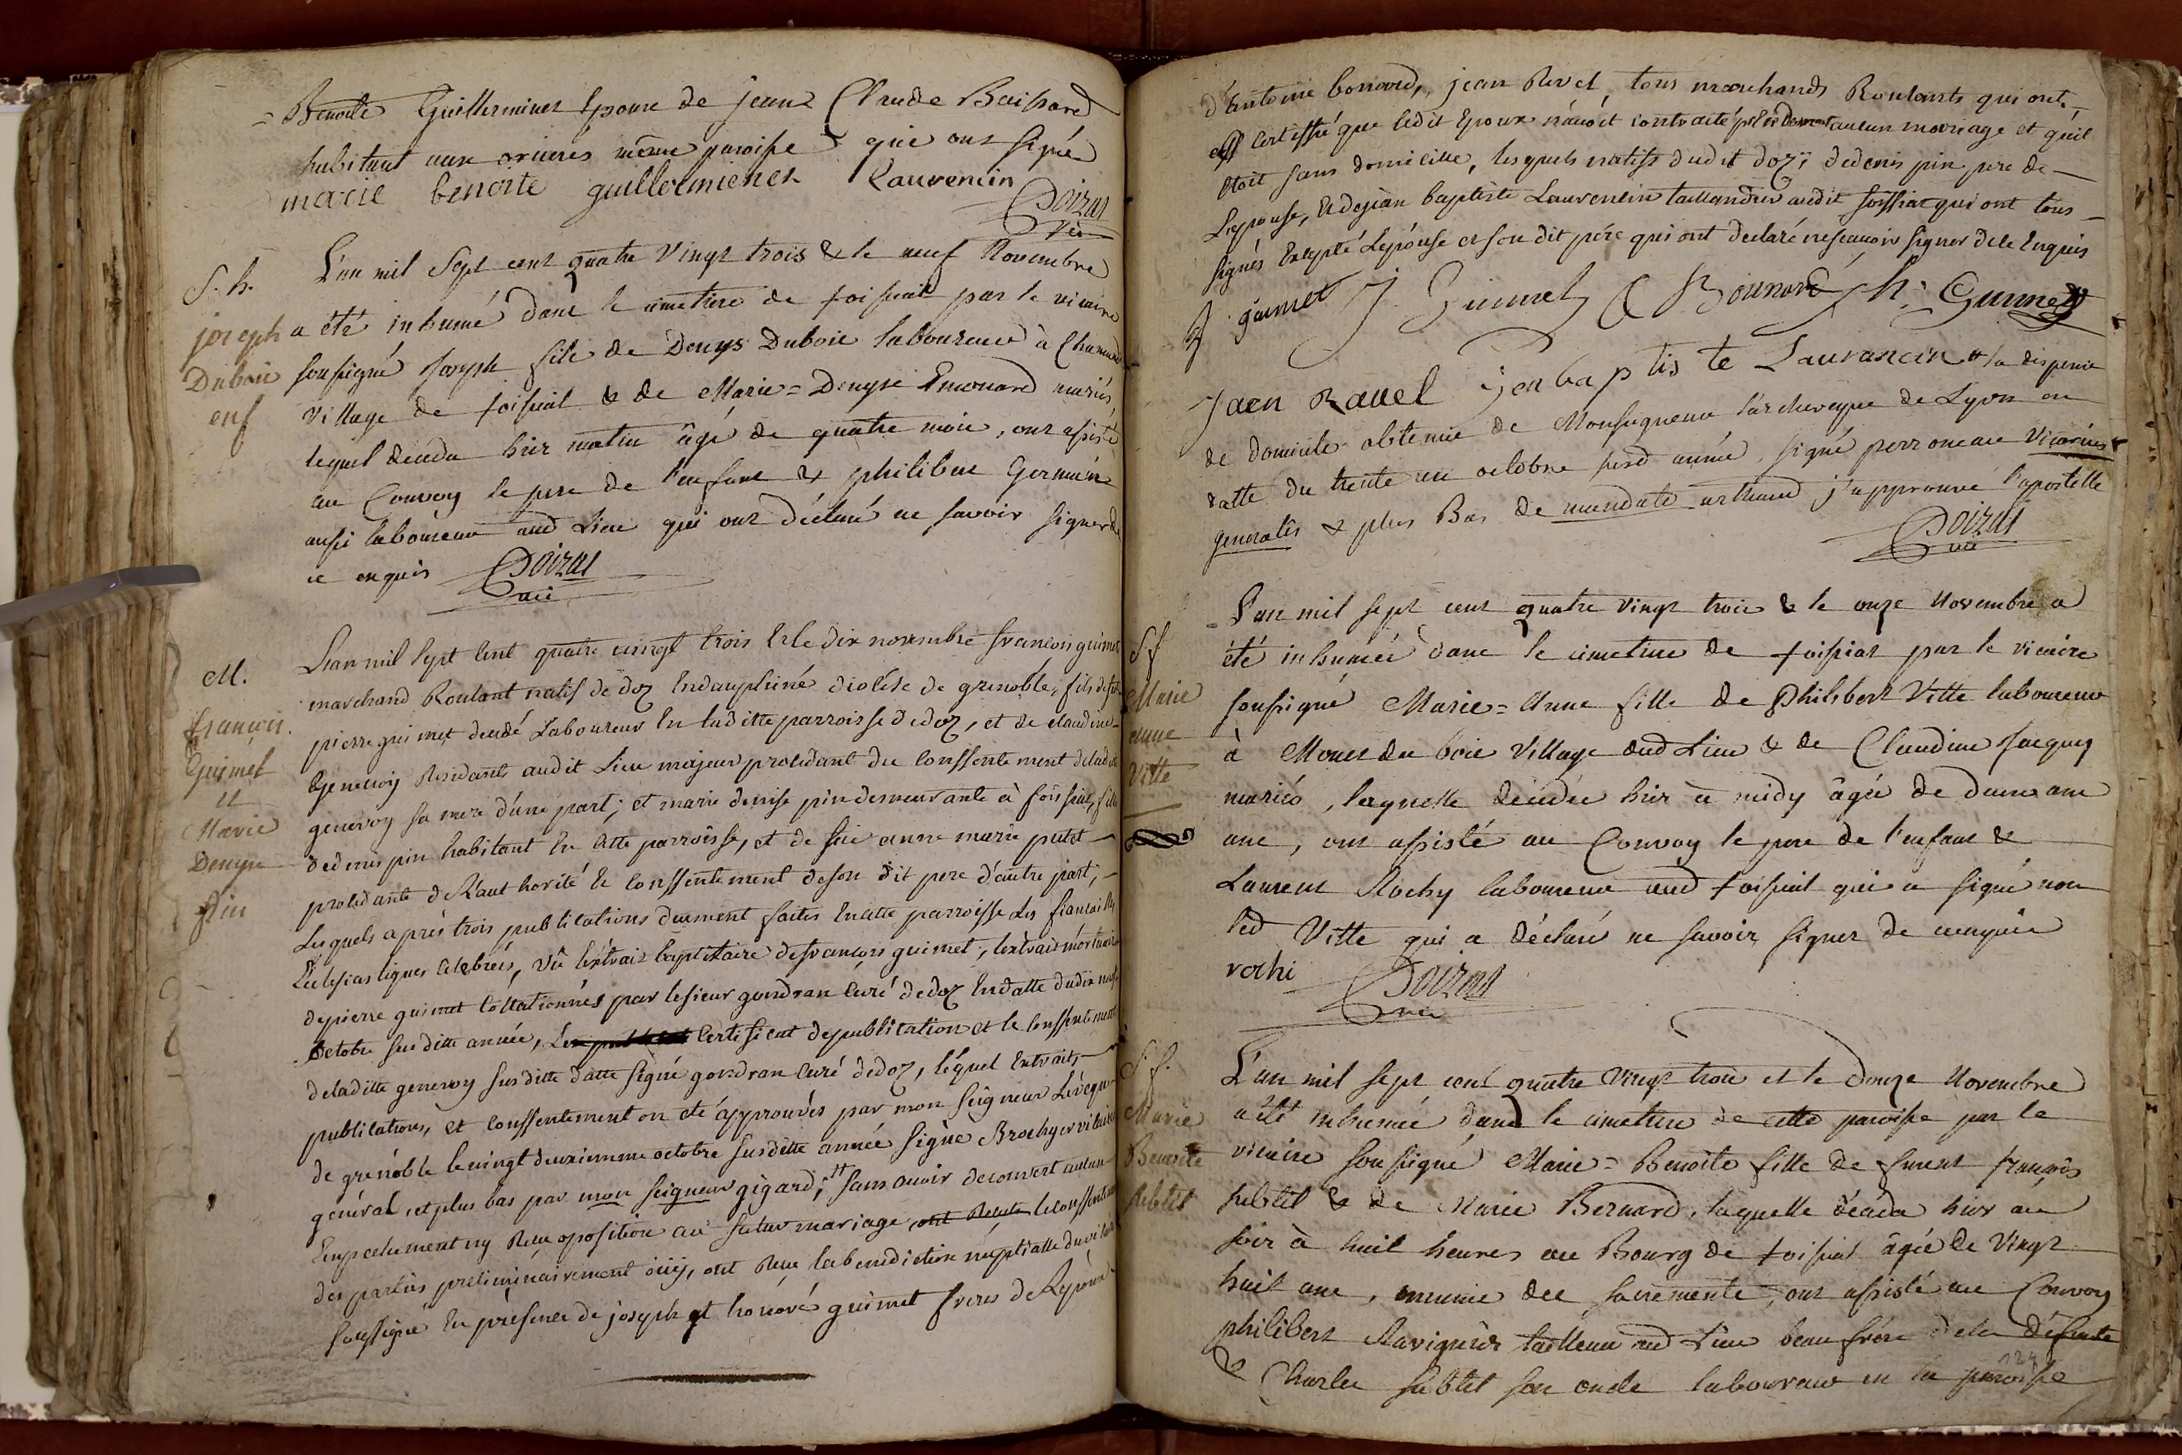 Benoite Guillerminet Epouse de jean Claude Buissard
habitant aux orieres même paroisse qui ont signé
marie benoite guillerminet Laurencin
Poizat
vic
S. h.
joseph
Dubois
enf
L'an mil Sept cent quatre vingt trois & le neuf Novembre
a été inhumé dans le cimetiere de foissiat par le vicaire
soussigné joseph fils de Denys Dubois laboureur à
village de foissiat & de Marie = Denyse Emonard mariés,
lequel décéda hier matin âgé de quatre mois, ont assisté
au Convoy le pere de l'enfant & philibert Germain
aussi laboureur aud Lieu qui ont déclaré ne savoir signer de
ce enquis Poizat
vic
M.
françois
Guimet
et
Marie
Denyse
Pin
L'an mil sept cent quatre vingt trois et le dix novembre françois guimet
marchand Roulant natif de doz en dauphiné diocése de grenoble, fils de feu
pierre guimet decedé Laboureur en laditte parroisse de doz, et de claudine
genevoy Residants audit Lieu majeur procedant du conssentement de laditte
genevoy sa mere d'une part; et marie denise pin demeurante à foissiat, fille
de denis pin habitant en cette parroisse, et de feüe anne marie putet
procedante de l'authorité et conssentement de son dit pere d'autre part;
Lesquels après trois publications duement faites en cette parroisse les fiançailles
Ecclesiastiques celebrées, vû l'extrait baptistaire de françois guimet, l'extrait mortuaire
de pierre guimet collationnés par le sieur gondran curé de doz en datte du dix neuf
octobre susditte année, Le certificat de publication et le conssentement
de laditte genevoy susditte datte signé gondran curé de doz, lequel Extraits
publications, et conssentement on eté approuvés par mon seigneur L'évêque
de grenoble le vingt deuxiemme octobre susditte année signé Brochyer vicaire
général, et plus bas par mon seigneur gigard; sans avoir decouvert aucun
Empechement ny Reçu oposition au futur mariage, ont Reçu le conssentement
des parties préliminairement oüy, ont Reçu la benediction nuptialle du vicaire
soussigné en présence de joseph et honoré guimet freres de L'epoux
d'antoine bonnard, jean Revel, tous marchands Roulants qui ont
certiffié que ledit Epoux n'avoit contracté précédement aucun mariage et qu'il
étoit sans domicille, lesquels natifs dudit doz; de denis pin pere de
L'epouse, et de jean baptiste Laurencin taillandier audit foissiat qui ont tous
signés Excepté L'epouse et son dit pére qui ont declaré ne scavoir signer de ce Enquis
J guimet J. Guimet A Bonnard h. Guimet
Jaen Ravel jenbaptiste Laurancin # la dispense
de domicile obtenue de Monseigneur l'archeveque de Lyon en
datte du trente un octobre susd année, signé perronneau vicarius
generalis & plus Bas de mandato arthaud j'approuve l'apostille
Poizat
vic
S f
Marie
anne
Vitte
L'an mil sept cent quatre vingt trois & le onze Novembre a
été inhumée dans le cimetiere de foissiat par le vicaire
soussigné Marie = Anne fille de Philibert Vitte laboureur
à Monet du bois village dud Lieu & de Claudine Jacquet
mariés, laquelle décéda hier à midy âgée de deux ans
ans, ont assisté au Convoy le pere de l'enfant &
Laurent Rochy laboureur aud foissiat qui a signé non
led Vitte qui a déclaré ne savoir signer de ce enquis
rochi Poizat
vic
S f.
Marie
Benoite
sublet
L'an mil sept cent quatre vingt trois et le Douze Novembre
a été inhumée dans le cimetiere de cette paroisse par le
vicaire soussigné Marie = Benoîte fille de furent françois
sublet & de Marie Bernard, laquelle décéda hier au
soir à huit heures au Bourg de foissiat âgée de vingt
huit ans, munie des sacrements, ont assisté au Convoy
philibert Ravignier tailleur aud Lieu beau frére de la défunte
& Charles sublet son oncle laboureur en la paroisse
124